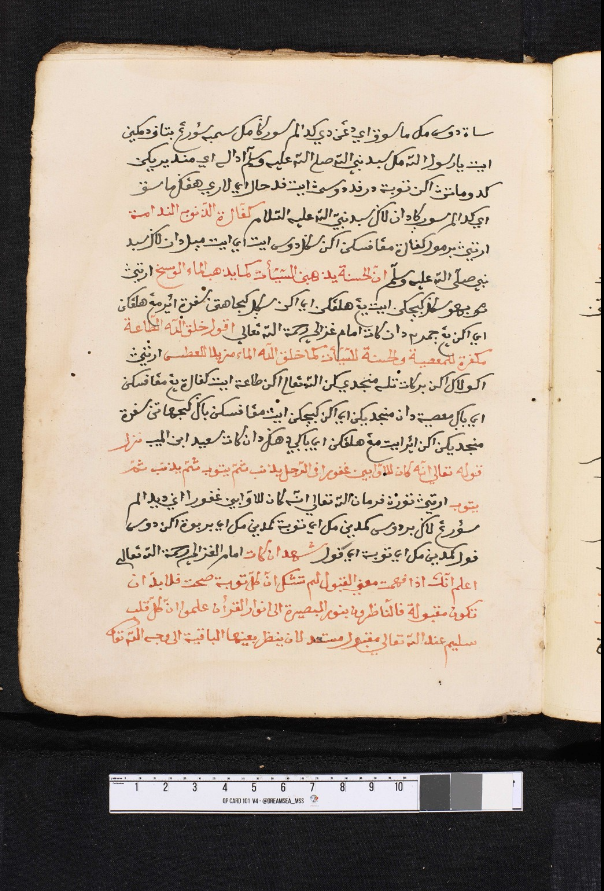 ساة دوس مك ماسوق اي دغن دي كدالم سورك مك سمب سؤرغ بتاڤ دمكين
ايت يا رسول الله مك سبد نبي الله صلى الله عليه وسلم اداله اي منديريكن
اكن توبة درفد دوسڽ ايت فد حال اي لاري هڠك ماسق
اي كدالم سورك دان لاكي سبد نبي الله عليه السلام كفارة الذنوب الندامة
ارتيڽ برمول كفارة مڠافسكن اكن سكل دوس ايت اي ايت ميسل دان لاكي سبد
نبي صلى الله عليه وسلم ان الحسنة يذهبن السيئات كما يذهب الماء الوسخ ارتيڽ
سكل كبجيكن ايت يڠ هلڠكن اي اكن سكل كجاهتن سفرة اير يڠ هلڠكن
اي اكن يڠ جمر دان كات امام غزالي رحمة الله تعالى اقول خلق الله الطاعة
مكفرة للمعصية والحسنة للسيئات كما خلق الله الماء مزيلا للعطش ارتيڽ
اكو كات اكن الله تعالى اكن طاعة ايت كفارة يڠ مڠافسكن
اي باكي معصية دان منجديكن اي اكن كبجيكن ايت مڠافسكن باكي كجهاتن سفرة
منجديكن اكن اير ايت يڠ هلڠكن اي باكي دهاك دان كات سعيد ابن المسيب نزل
قوله تعالى انه كان للاوابين غفورا في الرجل يذنب ثم يتوب ثم يذنب ثم
يتوب ارتيڽ تورن فرمان الله تعالى انه كان للاوابين غفورا اي ديدالم
سؤرغ لاكي بردوس كمدين مك اي توبة كمدين مك اي بربوة اكن دوس
فول كمدين مك اي توبة اي فول شهدان كات امام الغزالي رحمة الله تعالى
اعلم انك اذا فهمت معنى القبول لم تشك ان كل توبة صحت فلا بد ان
تكون مقبولة فالناظرون بنور البصيرة الى انوار القرأن علموا ان كل قلب
سليم عند الله تعالى مقبول ومستعد لان ينظر بعينها الباقية الى وجه الله تعالى
1 2 3 4 5 6 7 8 9 10
DP CARD 101 V4 - @DREAMSEA_MSS